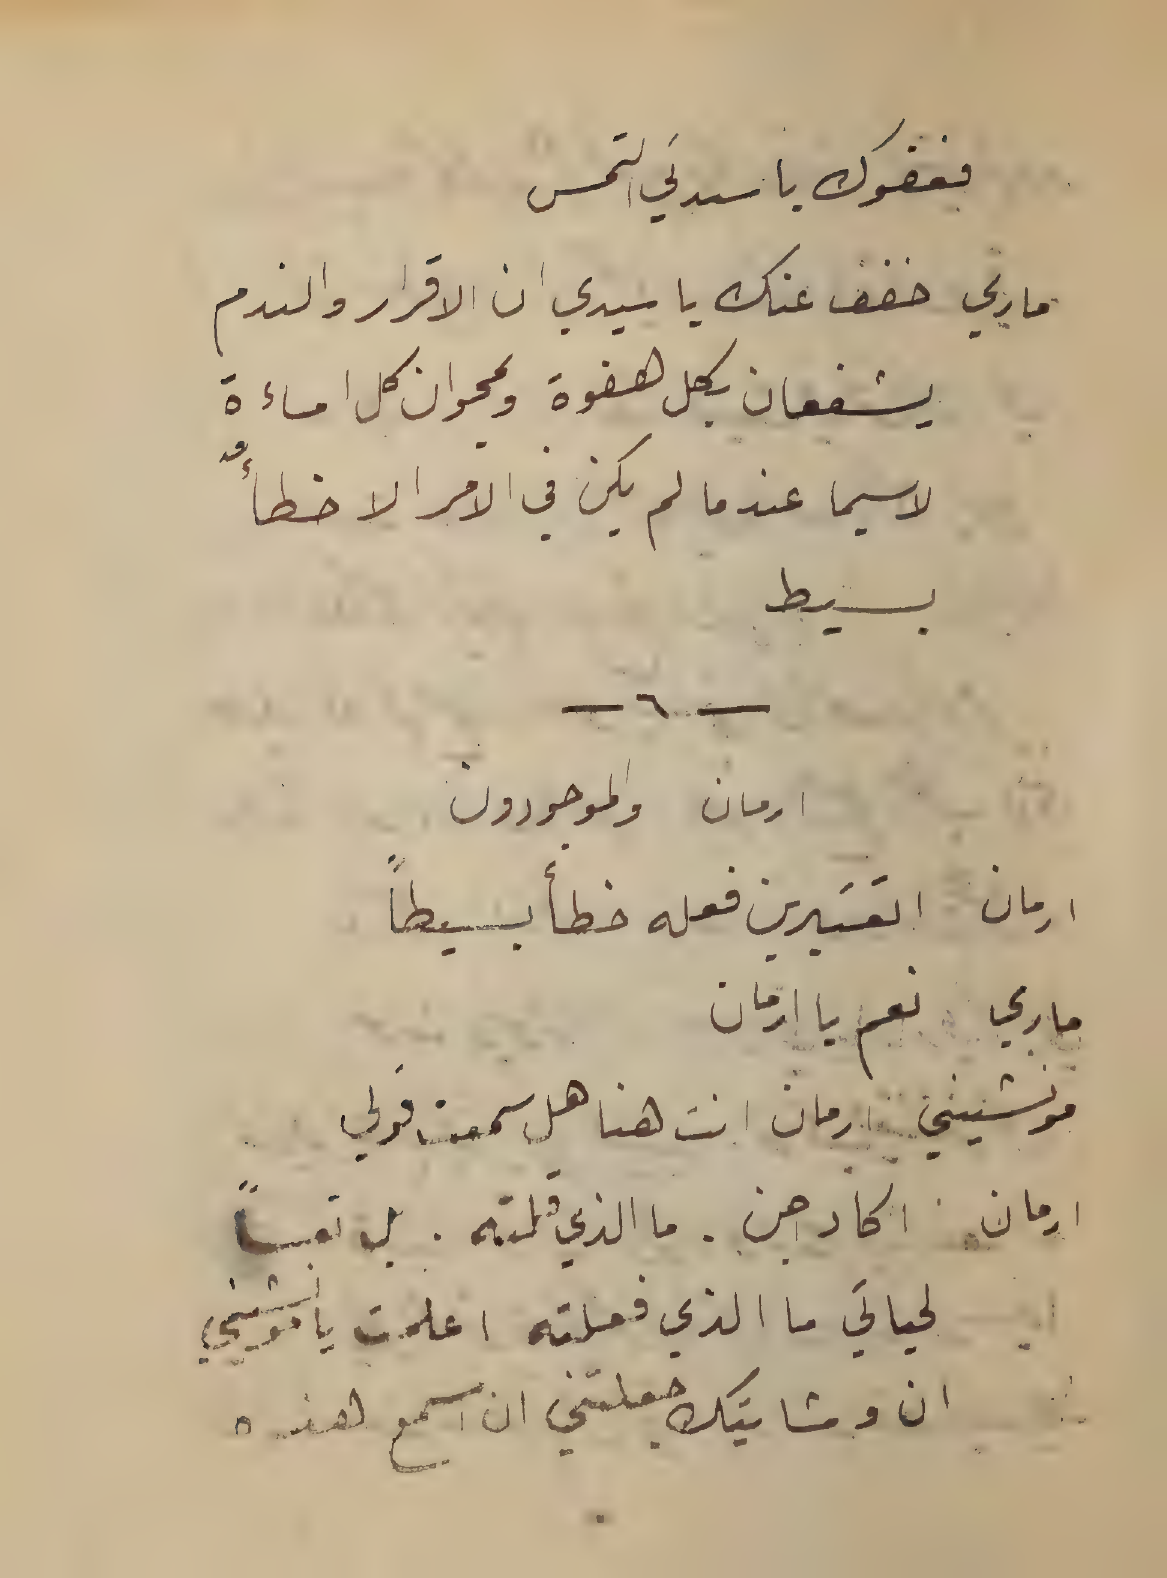 فعفوك يا سيدتي التمس
ماري خفف عنك يا سيدي ان الاقرار والندم
يشفعان بكل هفوة ويمحوان كل اساءة
لاسيما عندما لم يكن في الامر الا خطأ
بسيط
— ٦ —
ارمان والموجودون
ارمان اتعتبرين فعله خطأ بسيطاً
ماري نعم يا ارمان
مونشيني ارمان انت هنا هل سمعت قولي
ارمان اكاد اجن . ما الذي قلته . بل تعساً
لحياتي ما الذي فعلته اعلمت يا مونشيني
ان وشايتك جعلتني ان اسمع هذه